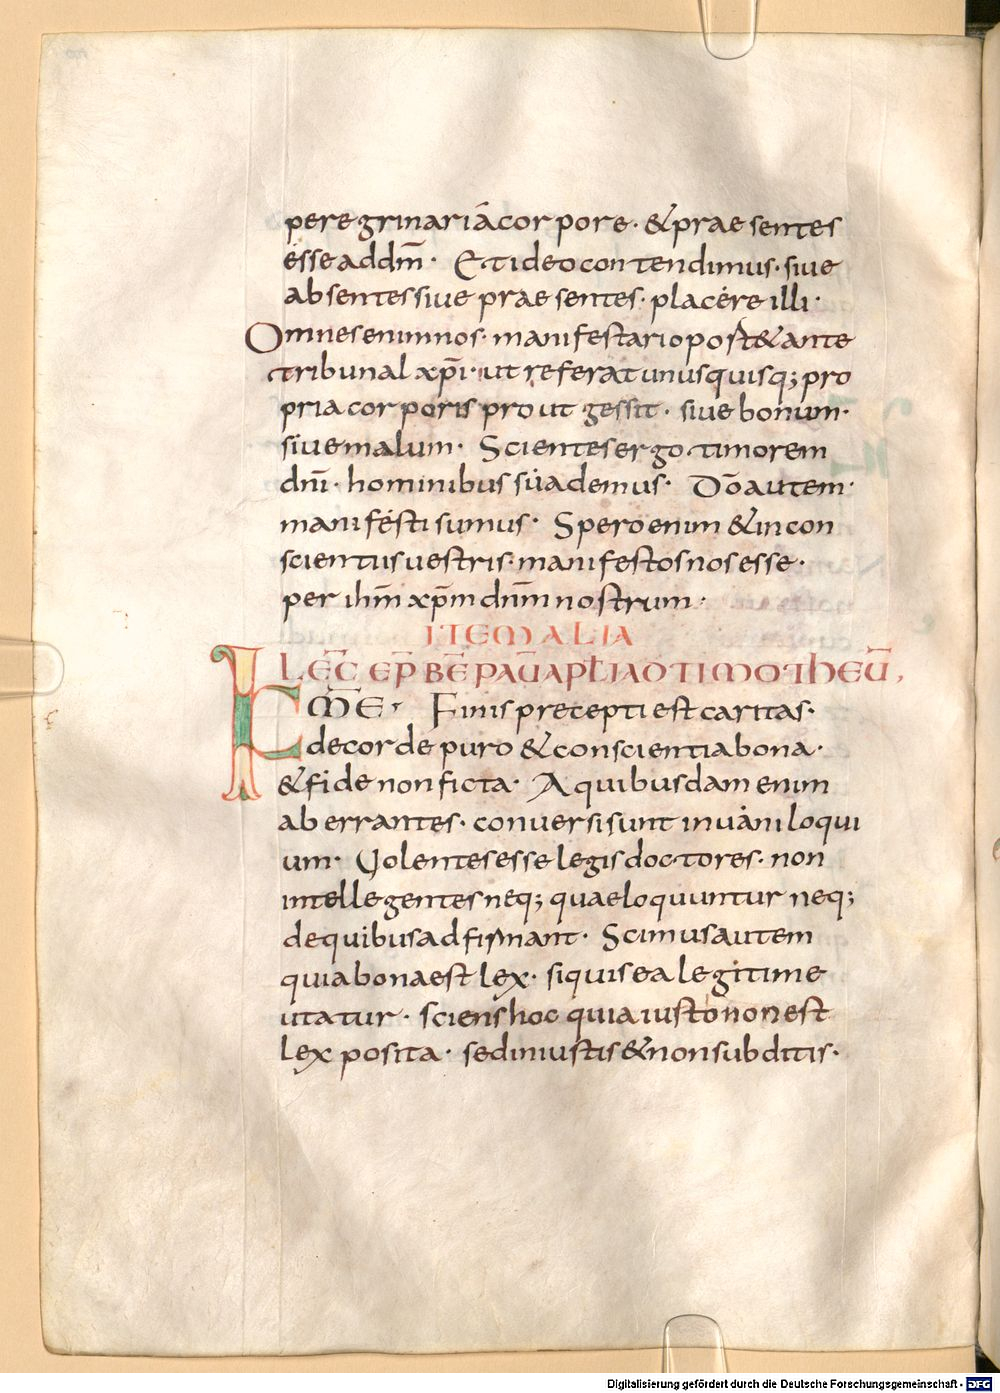 peregrinari ā corpore· & praesentes
esse ad dm̄· Et ideo contendimus· siue
absentes siue praesentes· placere illi·
Omnes enim nos· manifestari oport& ante
tribunal xp̄i· ut referat unusquisq; pro
pria corporis prout gessit· siue bonum·
siue malum· Scientes ergo timorem
dn̄i· hominibus suademus· Dō autem·
manifesti sumus· Spero enim & in con
scientiis uestris· manifestos nos esse·
per ih̄m xp̄m dn̄m nostrum·
ITEM ALIA
LEC̄ EP̄ BĒ PAŪ APL̄I AD TIMOTHEŪ,
FR̄ME· Finis precepti est caritas·
de corde puro & conscientia bona·
& fide non ficta· A quibusdam enim
aberrantes· conuersi sunt in uaniloqui
um· Uolentes esse legis doctores· non
intellegentes neq; quae loquuntur neq;
de quibus adfirmant· Scimus autem
quia bona est lex· si quis ea legitime
utatur· sciens hoc quia iusto non est
lex posita· sed iniustis & non subditis·
Digitalisierung gefördert durch die Deutsche Forschungsgemeinschaft - DFG